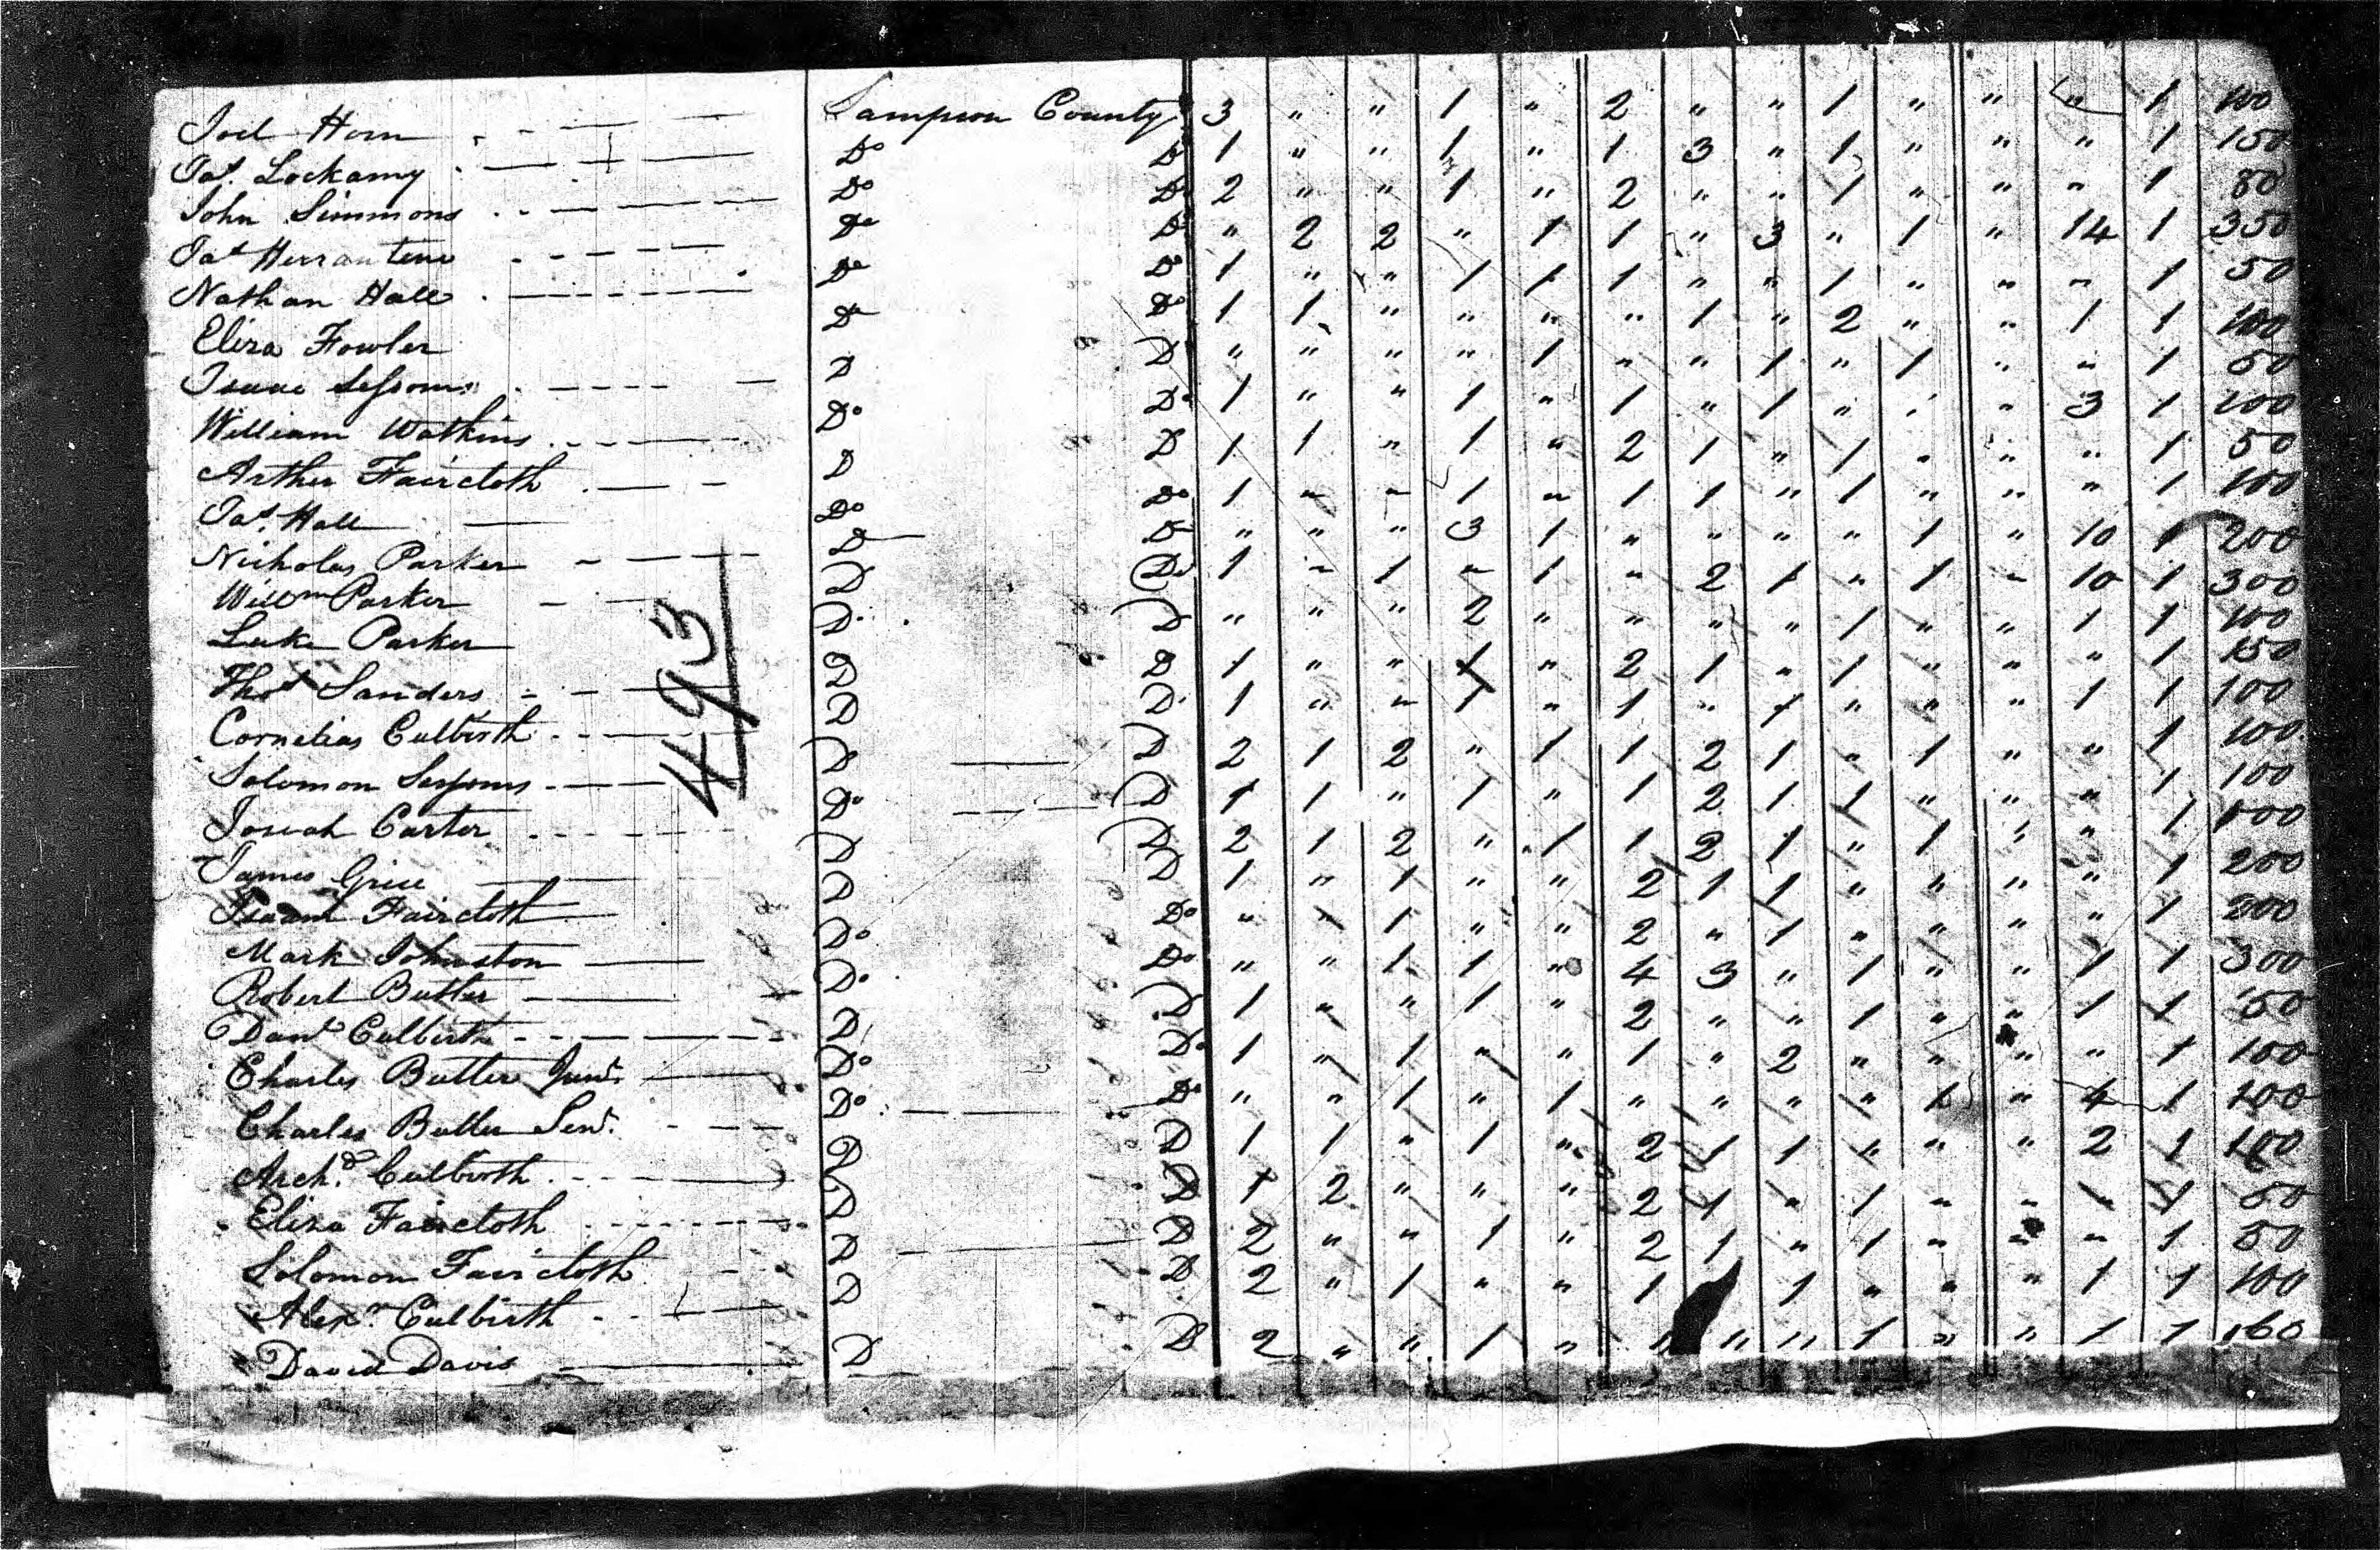 Joel Horn Sampson County 3 " " 1 " 2 " " 1 " " " 1 100
Jas. Lockamy Do Do 1 " " 1 " 1 3 " 1 " " " 1 150
John Simmons Do Do 2 " " 1 " 2 " " 1 " " " 1 80
Jas Do Do " 2 2 " 1 1 " 3 " 1 " 14 1 350
Nathan Hall Do Do 1 " " 1 1 1 " " 1 " " " 1 50
Eliza Fowler Do Do 1 1 " " " " 1 " 2 " " 1 1 100
Isaac Sessoms D D " " " " 1 " " 1 " 1 " " 1 50
William Watkins Do Do 1 " " 1 " 1 " 1 " " " 3 1 200
Arther Faircloth D D 1 1 " 1 " 2 1 " 1 " " " 1 50
Jas. Hall Do Do 1 " " 1 " 1 1 " 1 " " " 1 100
Nicholas Parker D D " " " 3 1 " " " " 1 " 10 1 200
Willm Parker D Do 1 " 1 " 1 " 2 1 " 1 " 10 1 300
Luke Parker D D " " " 2 " " " " 1 " " 1 1 100
Thos Sanders D D 1 " " 1 " 2 1 " 1 " " " 1 150
Cornelias Culbirth D D 1 " " 1 " 1 " 1 " " " 1 1 100
Solomon Sessoms D D 2 1 2 " 1 1 2 1 " 1 " " 1 100
Josiah Carter Do D 1 1 " 1 " 1 2 1 1 " " " 1 100
James Grice D D 2 1 2 " 1 1 2 1 " 1 " " 1 100
Faircloth D D 1 " 1 " " 2 1 1 " " " " 1 200
Mark Johnston Do Do " " 1 " " 2 " 1 " " " " 1 200
Robert Butler Do Do " " 1 1 " 4 3 " 1 " " 1 1 300
Danl Culberth D D 1 " " 1 " 2 " " 1 " " 1 1 50
Charles Butler Junr. Do Do 1 " 1 " " 1 " 2 " " " " 1 100
Charles Butler Senr. Do Do " " 1 " 1 " " " " 1 " 4 1 200
Archd. Culbirth D D 1 1 " 1 " 2 1 1 " " " 2 1 100
Eliza Faircloth D D 1 2 " " " 2 1 " 1 " " " 1 50
Solomon Faircloth D D 2 " " 1 " 2 1 " 1 " " " 1 50
Alexr Culbirth D D 2 " 1 " " 1 1 " " " 1 1 100
David Davis D D 2 " " 1 " " " " 1 " " 1 1 160
493